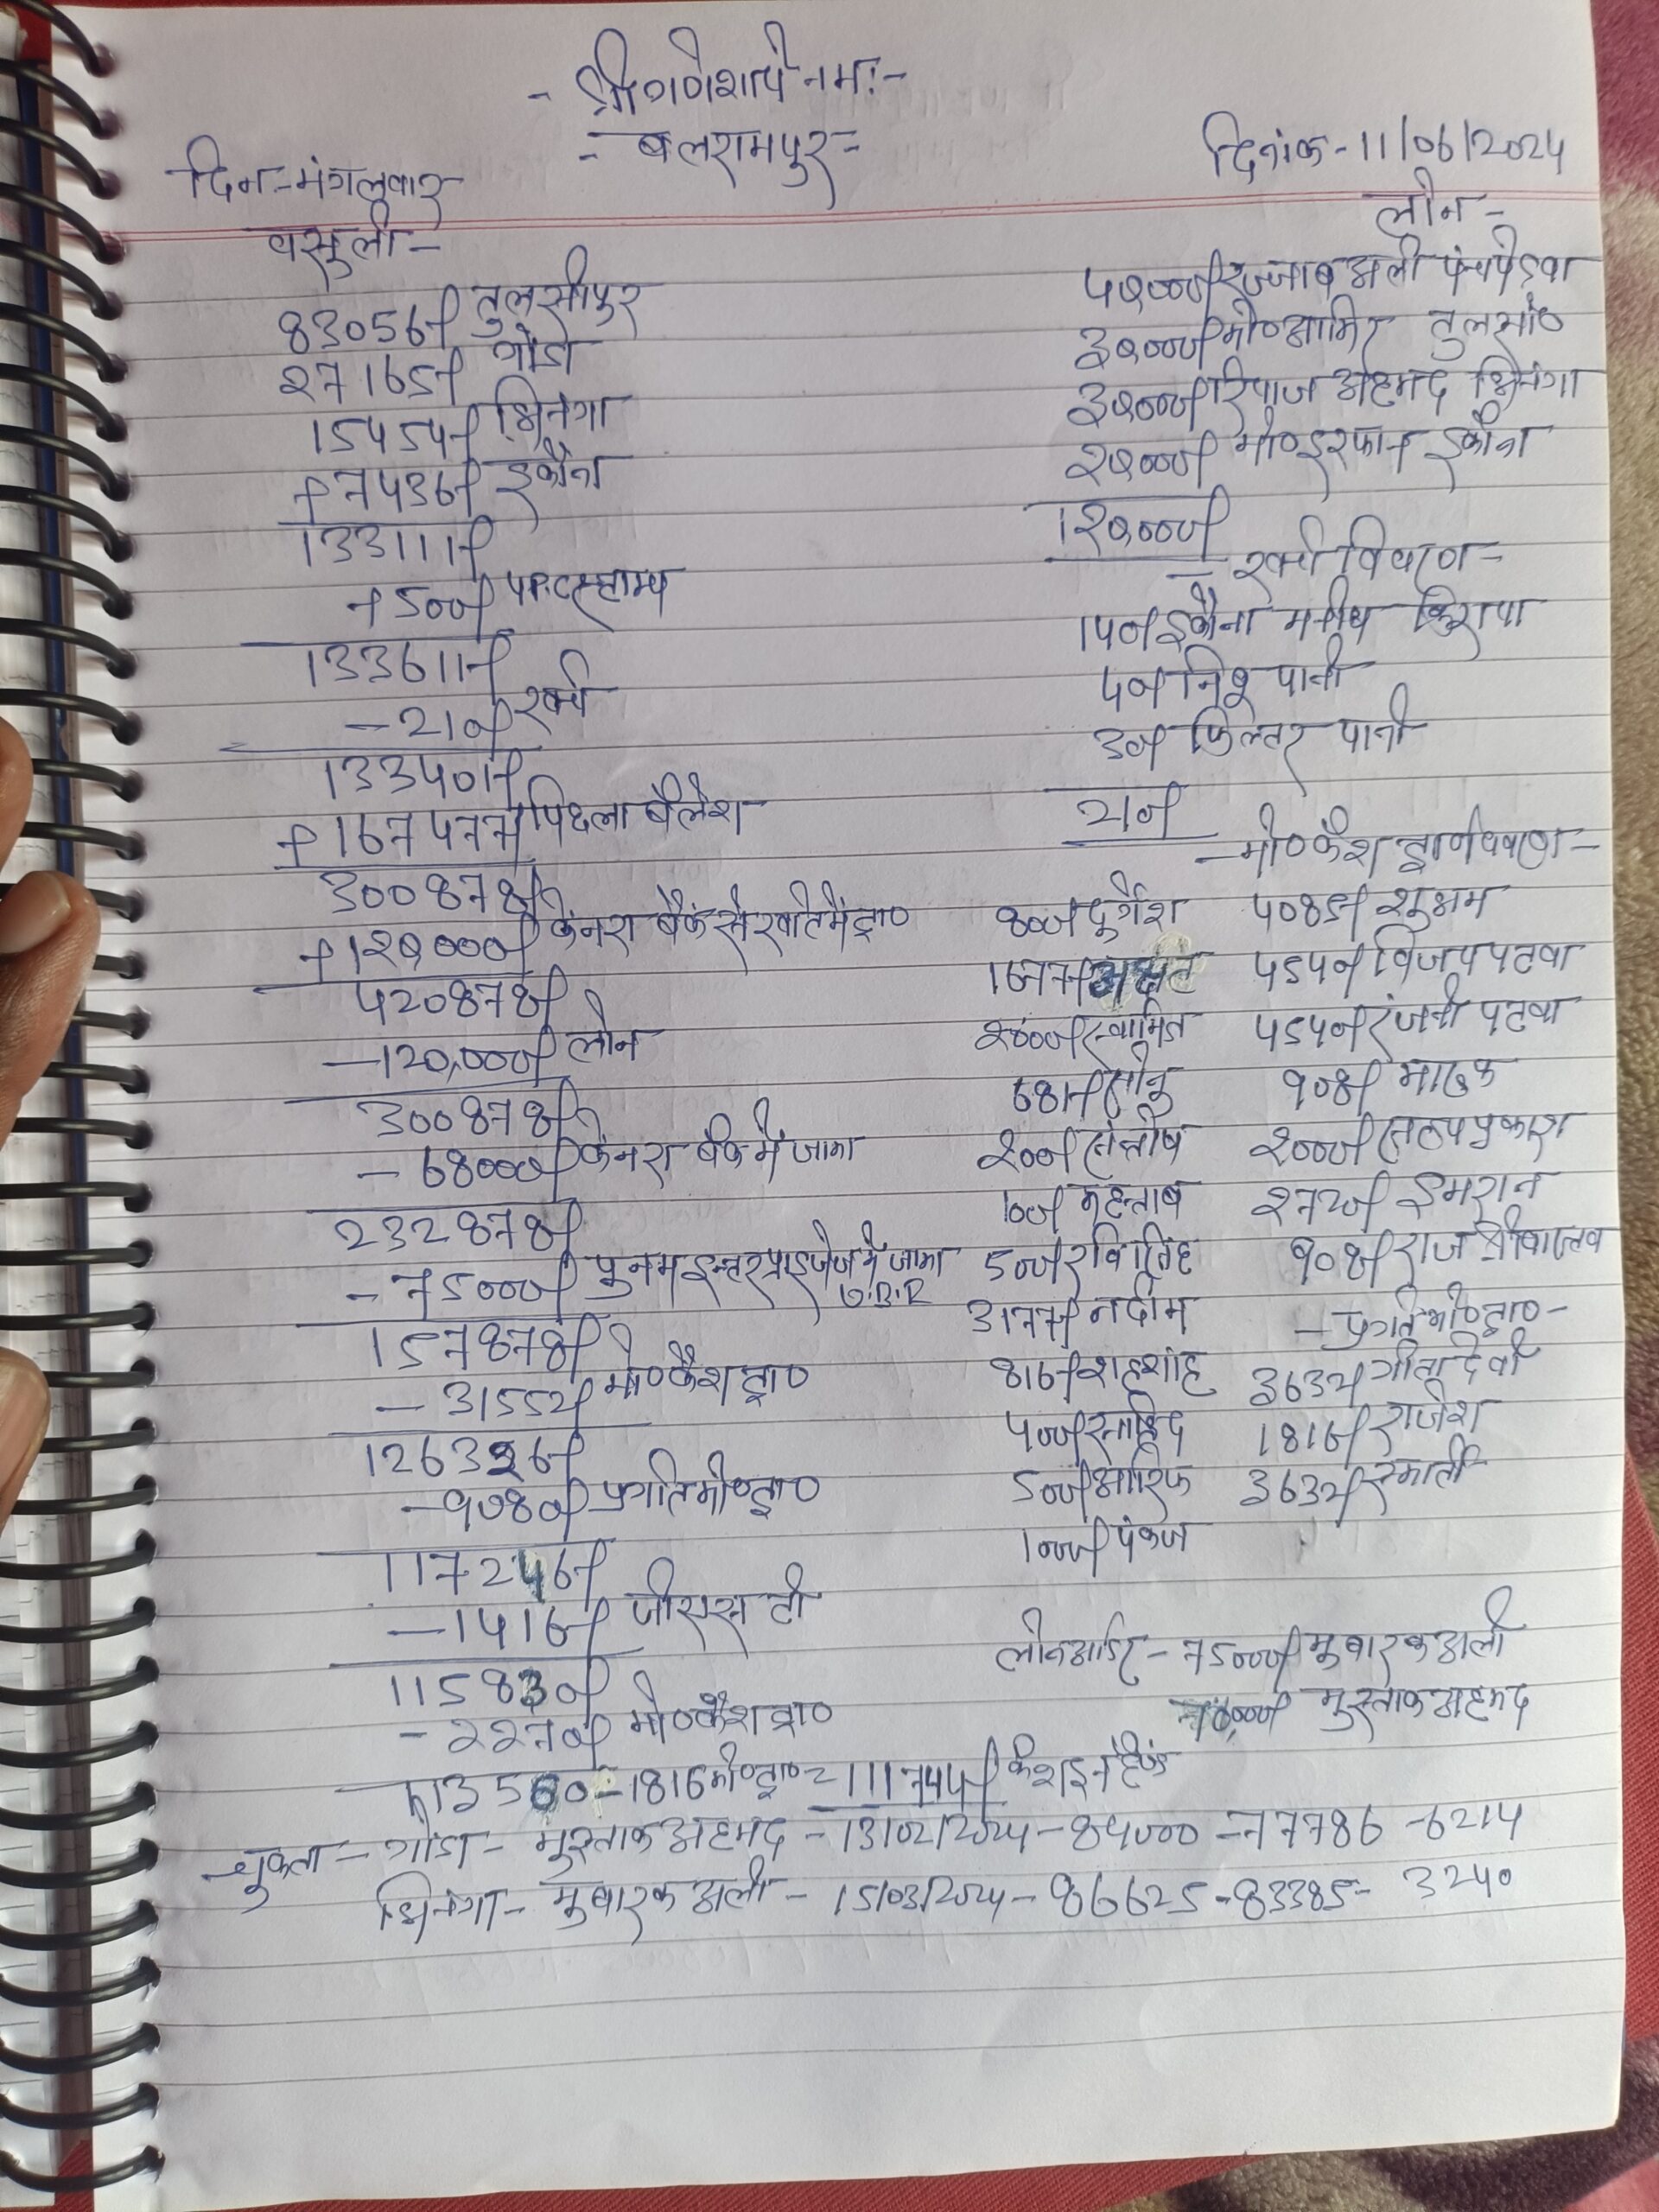 - श्री गणेशाये नमः -
- बलरामपुर -
दिन - मंगलवार
दिनांक - 11/06/2024
वसुली -
83056/ तुलसीपुर
27165/ गोंडा
15454/ भिनगा
+ 7436/ इकौना
133111/
+ 500/
133611/
- 210/ खर्च
133401/
+ 167477/ पिछला बैलेंश
300878/
+ 120,000/ केनरा बैंक से खाते में द्वा०
420878/
- 120,000/ लोन
300878/
- 68000/ केनरा बैंक में जामा
232878/
- 75000/ पुनम इन्टरप्राइजेज में जामा
157878/
- 31552/ मो० कैश द्वा०
126326/
- 9080/ प्रगति मो० द्वा०
117246/
- 1416/ जीएस टी
115830/
- 2270/ मो० कैश द्वा०
113560 - 1816 मो० द्वा० = 111744/ कैश इन हैण्ड
लोन -
50000/ रज्जाब अली पंचपेडवा
30000/ मो० आमिर तुलसी०
20000/ रियाज अहमद भिनगा
20000/ मो० इरफान इकौना
120000/
- खर्च विवरण -
140/ इकौना मनीष किराया
40/ पानी
30/ फिल्टर पानी
210/
800/ दुर्गेश
1677/
2800/
681/ सोनु
200/ संतोष
100/ महताब
500/ रवि सिंह
3177/ नदीम
816/ शहशांह
400/
500/ आरिफ
1000/ पंकज
4085/ शुभम
4540/ विजय पटवा
4540/ रंजनी पटवा
908/
2000/ सत्य प्रकाश
2720/ इमरान
908/ राज श्रीवास्तव
- प्रगति मो० द्वा० -
3632/ गीता देवी
1816/ राजेश
3632/
लोन आर्डर - 75000/ मुबारक अली
70,000/ मुस्ताक अहमद
चुकता - गोंडा - मुस्ताक अहमद - 13/02/2024 - 84000 - 77786 - 6214
भिनगा - मुबारक अली - 15/03/2024 - 86625 - 83385 - 3240